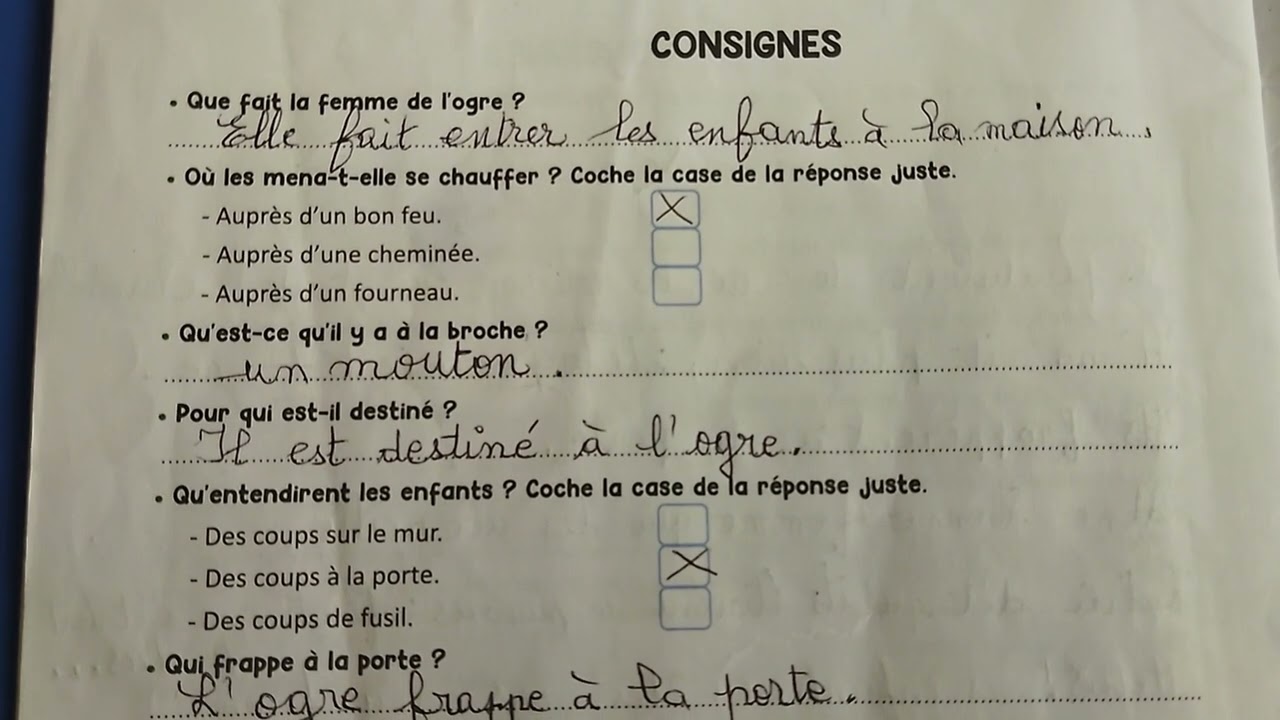 CONSIGNES
• Que fait la femme de l'ogre ?
Elle fait entrer les enfants à la maison.
• Où les mena-t-elle se chauffer ? Coche la case de la réponse juste.
- Auprès d'un bon feu.
- Auprès d'une cheminée.
- Auprès d'un fourneau.
• Qu'est-ce qu'il y a à la broche ?
un mouton.
• Pour qui est-il destiné ?
Il est destiné à l'ogre.
• Qu'entendirent les enfants ? Coche la case de la réponse juste.
- Des coups sur le mur.
- Des coups à la porte.
- Des coups de fusil.
• Qui frappe à la porte ?
L'ogre frappe à la porte.